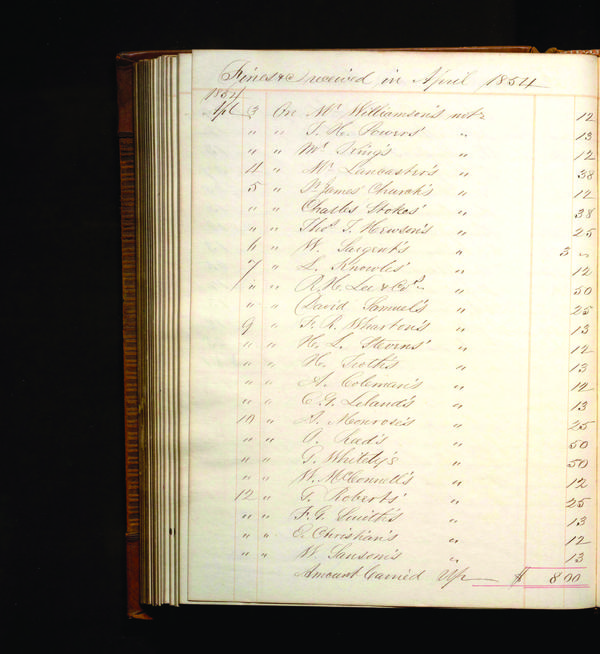 Fines &c received in April 1854
1854
Apl 3 On Mr Williamson's not 12
" " T. H. Powers' " 13
" " Mr King's " 12
4 " Mr Lancaster's " 38
5 " St James' Church's " 12
" " Charles Stokes' " 38
" " Thos T. Hewson's " 25
6 " W. Sargent's " 3 "
7 " L. Knowles' " 12
" " R. H. Lee & Co's " 50
" " David Samuel's " 25
9 " F. R. Wharton's " 13
" " H. L. Stevens' " 12
" " H. Troth's " 13
" " A. Coleman's " 12
" " C. G. Leland's " 13
10 " A. Monrose's " 25
" " Read's " 50
" " T. Whitely's " 50
" " W. McConnell's " 12
12 " T. Roberts' " 25
" " F. G. Smith's " 13
" " E. Christian's " 12
" " W. Sansom's " 13
Amount Carried Up $ 8 00